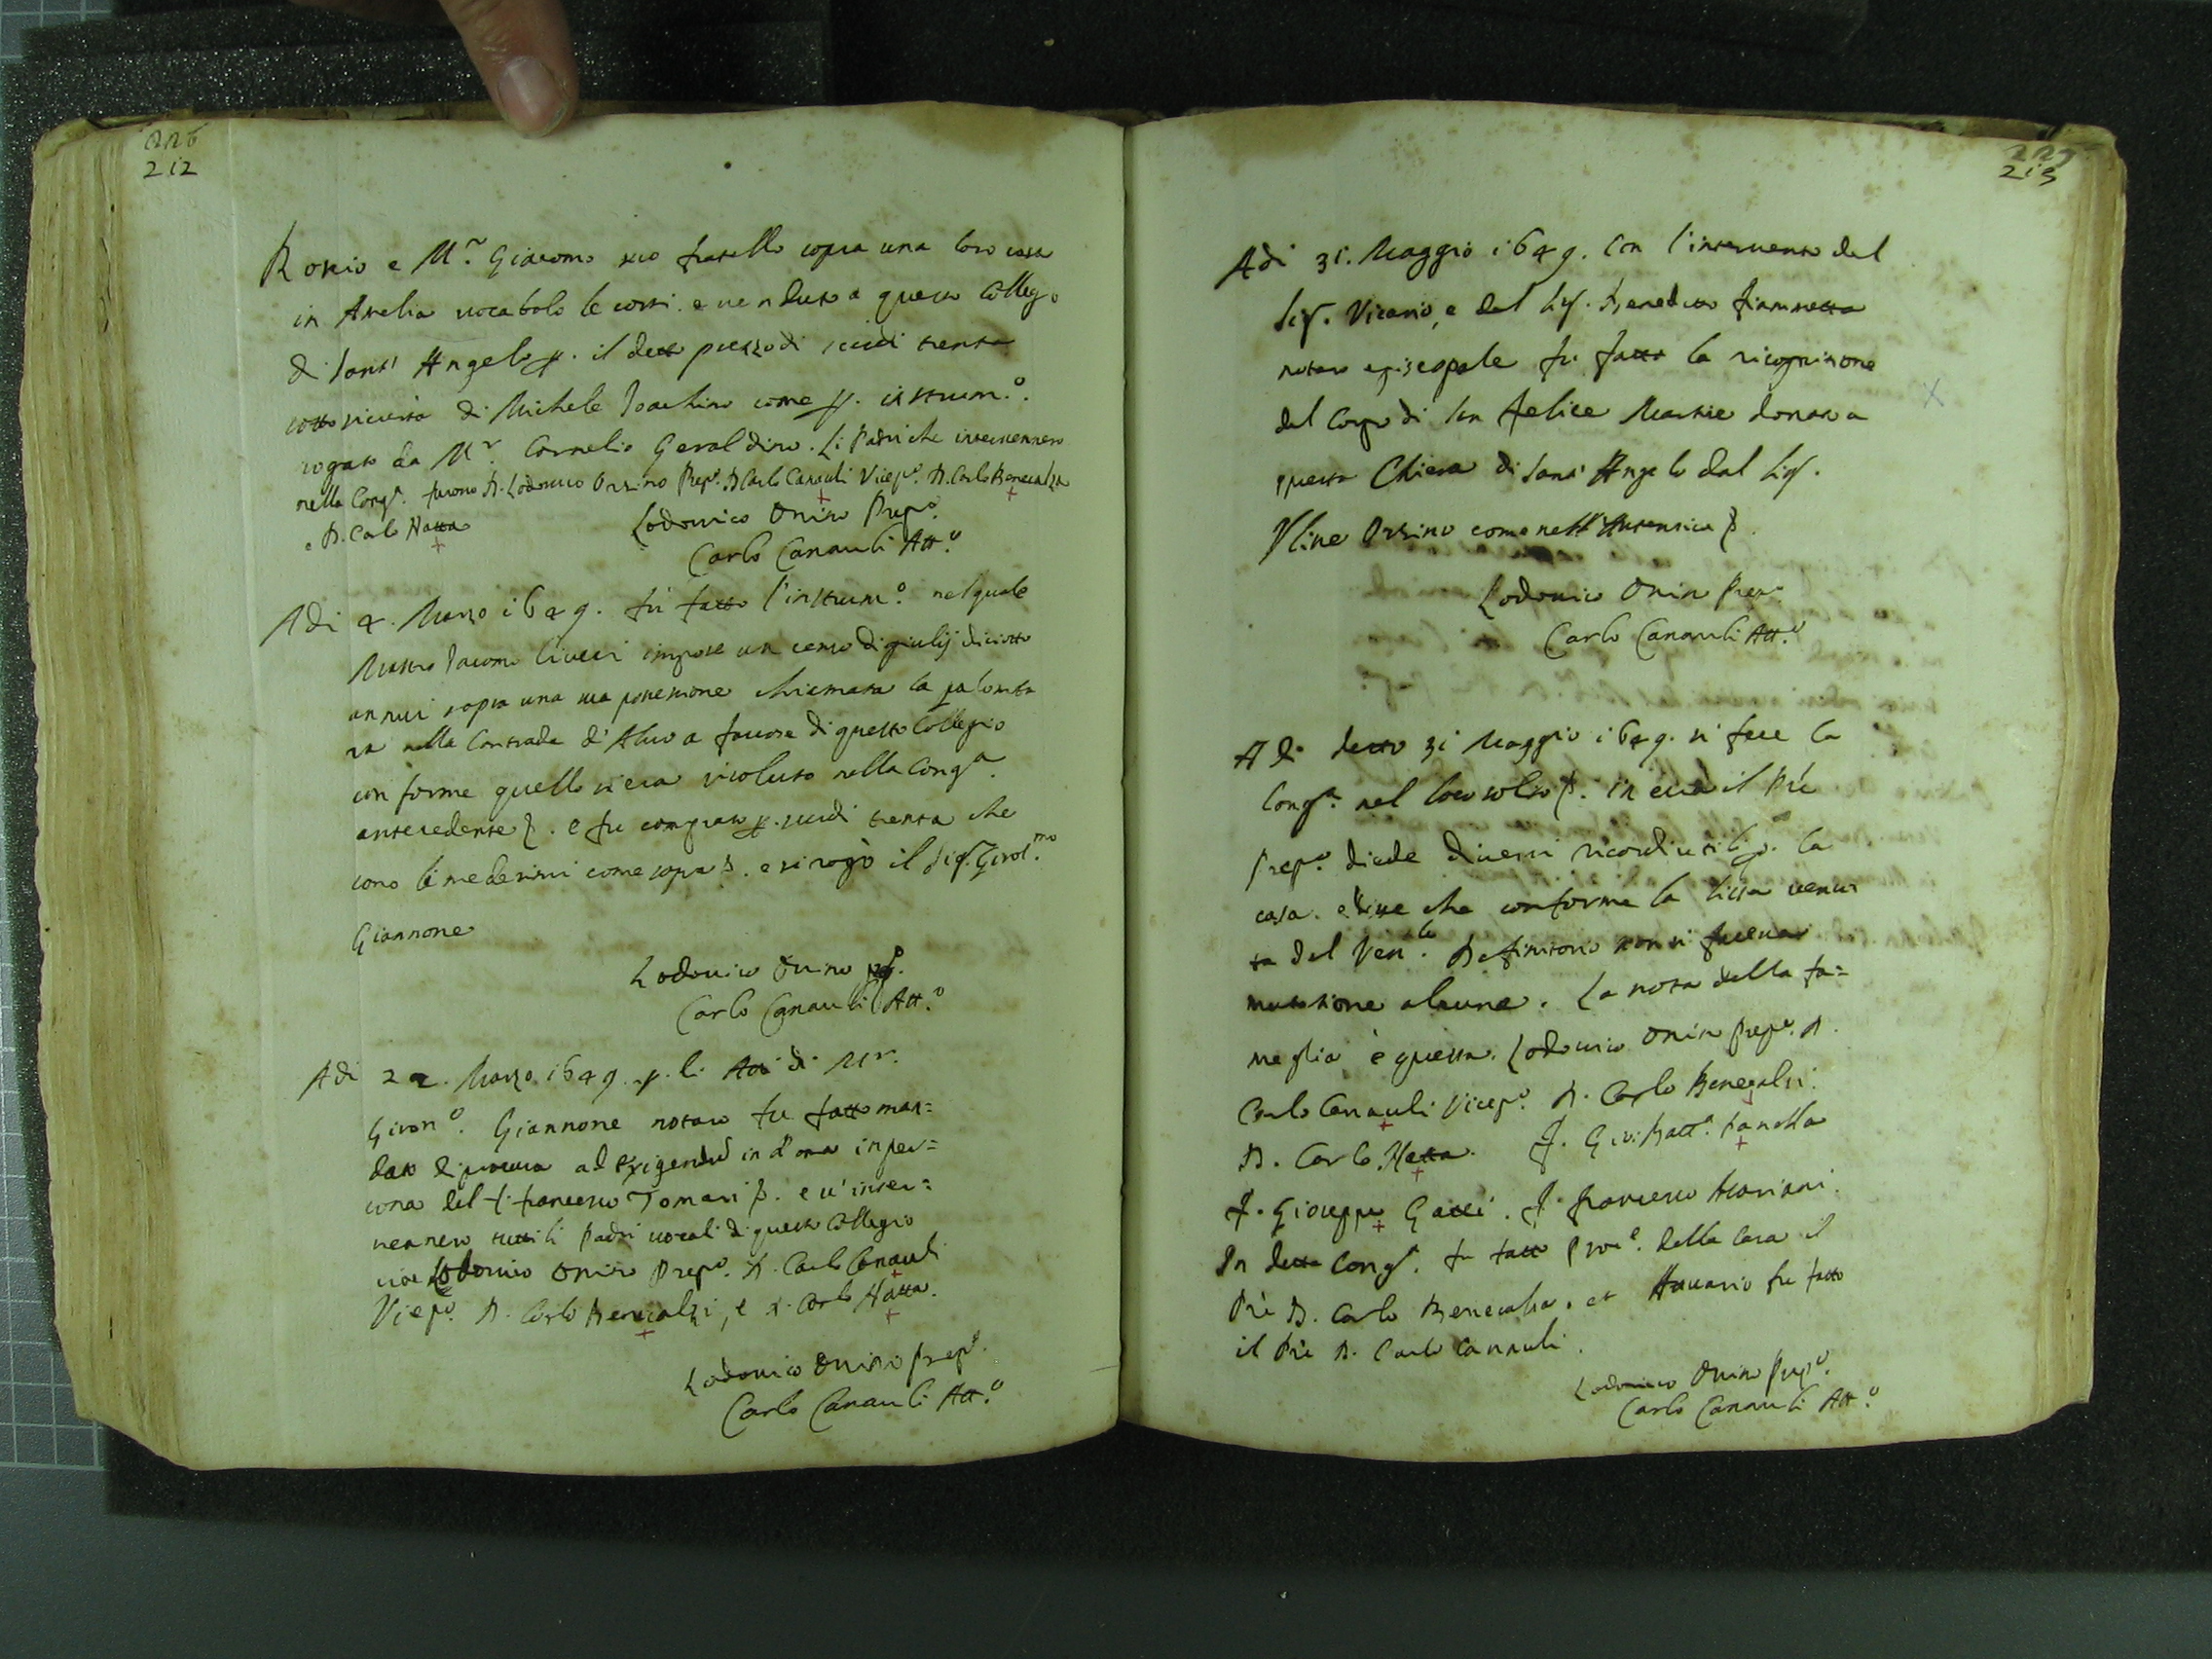 226
212
Rosio e M.r Giacomo suo fratello sopra una loro casa
in Amelia vocabolo le corti. e venduto a questo Colleg.o
di Sant' Angelo p. il detto prezzo di scudi trenta
sotto sicurtà di Michele Joachino come p. instrum.o.
rogato da M.r Cornelio Geraldino. Li Padri che intervennero
nella Cong.a. furono D. Lodovico Orsino Prep.o. D. Carlo Canauli Vicep.o. D. Carlo Benecalza
e D. Carlo Natta
Lodovico Orsino Prep.o
Carlo Canauli Att.o
Adi 4. Marzo 1649. fù fatto l'instrum.o. nel quale
Mastro Jacomo impose un censo di giulij diciotto
annui sopra una sua possessione chiamata la palomba
ra nella Contrada d' a favore di questo Collegio
conforme quello si era risoluto nella Cong.a.
antecedente p. e fu comprato p. scudi trenta che
sono li medesimi come sopra p. e si rogò il Sig. Girol.mo
Giannone
Lodovico Orsino
Carlo Canauli Att.o
Adi 22. Marzo 1649. p. li Atti di M.r.
Giron.o. Giannone notaro fu fatto man=
dato di procura ad exigendū in Roma in per=
sona del f. francesco Tomasi p. e v' inter=
vennero tutti li Padri vocali di questo Collegio
cioe Lodovico Orsino Prep.o. D. Carlo Canauli
Vicep.o. D. Carlo Benecalzi, e D. Carlo Natta.
Lodovico Orsino Prep.o.
Carlo Canauli Att.o
227
213
Adi 31. Maggio 1649. Con l'intervento del
Sig. Vicario, e del Sig. Benedetto fiammetta
notaro episcopale fu fatta la ricognitione
del Corpo di San felice Martire donato a
questa Chiesa di Sant' Angelo dal Sig.
Orsino come nell' Autentica p.
Lodovico Orsino Prep.o
Carlo Canauli Att.o
Adi detto 31 Maggio 1649. si fece la
Cong.a. nel loco solito p. in cui il Prē
Prep.o. diede diversi ricordi utili p. la
casa. e disse che conforme la lista venu
ta del Ven.le Definitorio non si faceva
mutatione alcuna. La nota della fa=
meglia è questa. Lodovico Orsino Prep.o. D.
Carlo Canauli Vicep.o. D. Carlo Benecalzi.
D. Carlo Natta. f. Gio: Batt.a. Panella
f. Gioseppe Gatti. f. francesco Mariani.
In detta Cong.a. fu fatto Proc.e. della Casa il
Prē D. Carlo Benecalza. et Attuario fu fatto
il Prē D. Carlo Canauli.
Lodovico Orsino Prep.o.
Carlo Canauli Att.o